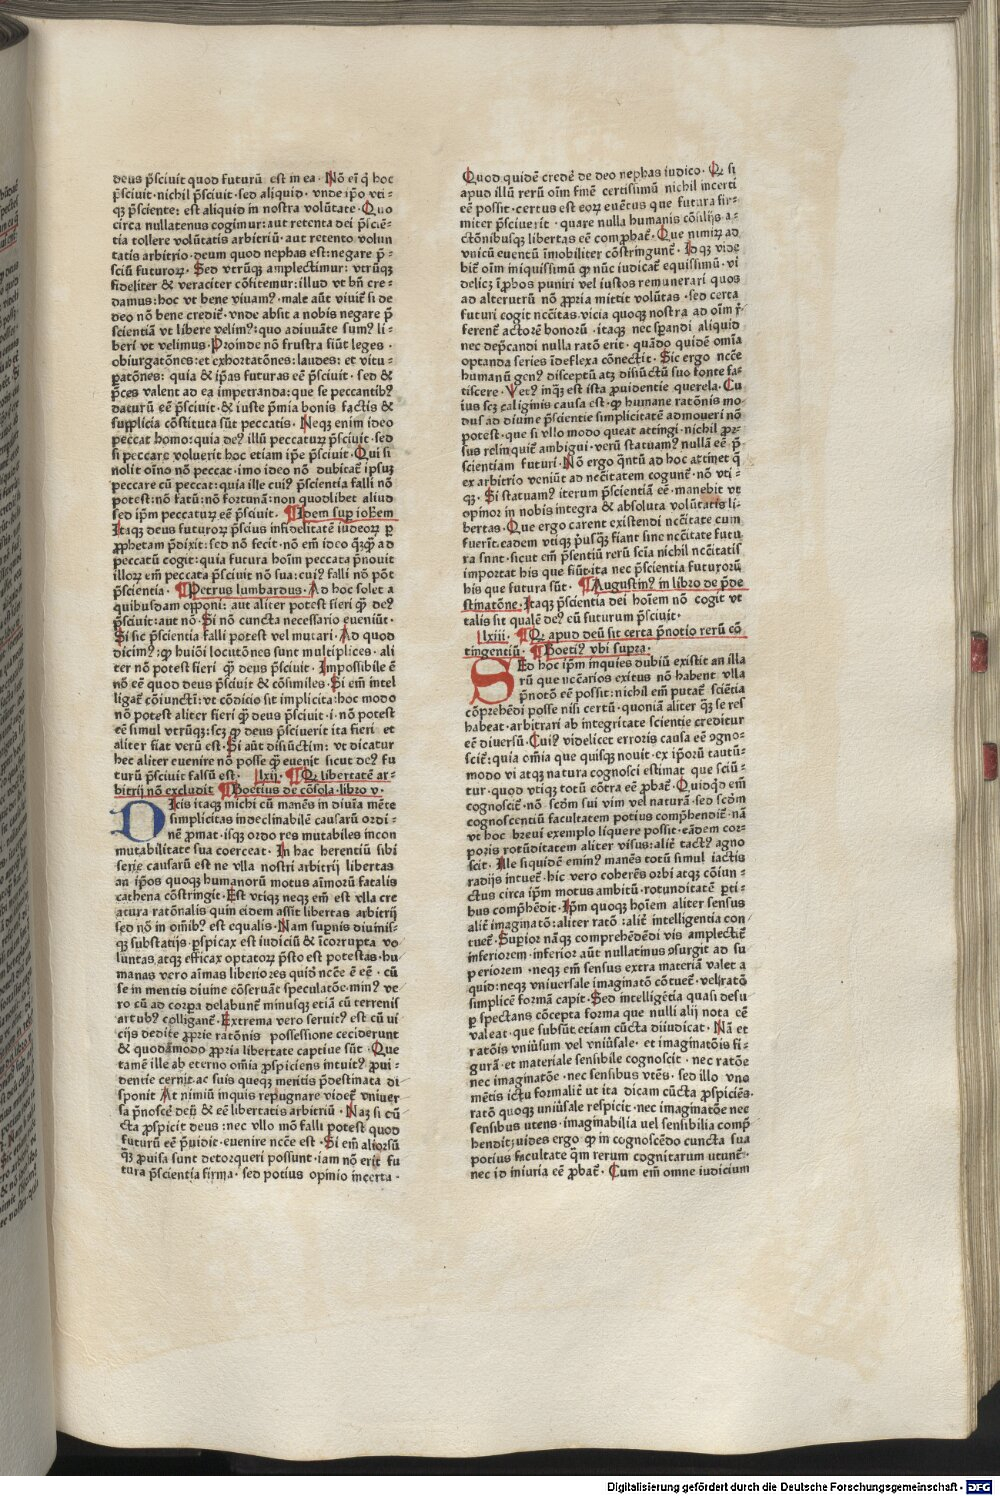 deus p̄sciuit quod futurū est in ea · Nō eī q̄ hoc
p̄sciuit · nichil p̄sciuit · sed aliquid · vnde ip̄o vti-
qꝫ p̄sciente: est aliquid in nostra volūtate · Quo
circa nullatenus cogimur: aut retenta dei p̄sciē-
tia tollere volūtatis arbitriū: aut retento volun
tatis arbitrio · deum quod nephas est: negare p̄-
sciū futuroꝝ · Sed vtrūqꝫ amplectimur: vtrūqꝫ
fideliter & veraciter cōfitemur: illud vt bn̄ cre-
damus: hoc vt bene viuamꝰ · male aūt viuit̄ si de
deo nō bene credit̄ · vnde absit a nobis negare p̄
scientiā vt libere velimꝰ: quo adiuuāte sumꝰ li-
beri vt velimus · Proinde nō frustra fiūt leges ·
obiurgatōnes: et exhortatōnes: laudes: et vitu-
ꝑatōnes: quia & ip̄as futuras eē p̄sciuit · sed &
p̄ces valent ad ea impetranda: que se peccantibꝰ
daturū eē p̄sciuit · & iuste p̄mia bonis factis &
supplicia cōstituta sūt peccatis · Neqꝫ enim ideo
peccat homo: quia deꝰ illū peccaturꝫ p̄sciuit · sed
si peccare voluerit hoc etiam ip̄e p̄sciuit · Qui si
nolit oīno nō peccat · imo ideo nō dubitat̄ ipsuꝫ
peccare cū peccat: quia ille cuiꝰ p̄scientia falli nō
potest: nō fatū: nō fortunā: non quodlibet aliud
sed ip̄m peccaturꝫ eē p̄sciuit · ¶ Idem suꝑ ioh̄em
Itaqꝫ deus futuroꝝ p̄scius infidelitatē iudeoꝝ ꝑ
ꝓphetam p̄dixit: sed nō fecit · nō em̄ ideo qȝqꝫ ad
peccatū cogit: quia futura hoīm peccata p̄nouit
illoꝝ em̄ peccata p̄sciuit nō sua: cuiꝰ falli nō pōt
p̄scientia · ¶ Petrus lumbardus · Ad hoc solet a
quibusdam opponi: aut aliter potest fieri qꝫ deꝰ
p̄sciuit: aut nō · Si nō cuncta necessario eueniūt ·
Si sic p̄scientia falli potest vel mutari · Ad quod
dicimꝰ: ꝙ huiōi locutōnes sunt multiplices · ali
ter nō potest fieri qꝫ deus p̄sciuit · Impossibile ē
nō eē quod deus p̄sciuit & cōsimiles · Si em̄ intel
ligat̄ cōiuncti: vt cōdicio sit implicita: hoc modo
nō potest aliter fieri qꝫ deus p̄sciuit · i · nō potest
eē simul vtrūqꝫ: scꝫ ꝙ deus p̄sciuerit ita fieri et
aliter fiat verū est · Si aūt disiūctim: vt dicatur
hec aliter euenire nō posse ꝙ euenit sicut deꝰ fu
turū p̄sciuit falsū est · lxii · ¶ Qꝫ libertatē ar-
bitrij nō excludit ¶ Boetius de cōsola · libro v ·
Dicis itaqꝫ michi cū manēs in diuīa mēte
simplicitas indeclinabilē causarū ordi-
nē ꝓmat · isqꝫ ordo res mutabiles incon
mutabilitate sua coerceat · In hac herentiū sibi
serie causarū est ne vlla nostri arbitrij libertas
an ip̄os quoqꝫ humanorū motus aīmorū fatalis
cathena cōstringit · Est vtiqꝫ neqꝫ em̄ est vlla cre
atura ratōnalis quin eidem assit libertas arbitrij
sed nō in om̄ibꝰ est equalis · Nam suꝑnis diuinis-
qꝫ substatijs ꝑspicax est iudiciū & īcorrupta vo
luntas atqꝫ efficax optatoꝝ p̄sto est potestas · hu
manas vero aīmas liberiores quidē ncēē ē eē · cū
se in mentis diuine cōseruāt speculatōe · minꝰ ve
ro cū ad corꝑa delabunt̄ minusqꝫ etiā cū terrenis
artubꝰ colligant̄ · Extrema vero seruitꝰ est cū vi
cijs dedite ꝓprie ratōnis possessione ceciderunt
& quodāmodo ꝓpria libertate captiue sūt · Que
tamē ille ab eterno om̄ia ꝓspiciens intuitꝰ ꝓui-
dentie cernit · ac suis queqꝫ meritis p̄destinata di
sponit At nimiū inquis repugnare videt̄ vniuer
sa p̄noscē deū & eē libertatis arbitriū · Naꝫ si cū
cta ꝓspicit deus: nec vllo mō falli potest quod
futurū eē p̄uidit · euenire ncēe est · Si em̄ aliorsū
qȝ ꝓuisa sunt detorqueri possunt · iam nō erit fu
tura p̄scientia firma · sed potius opinio incerta ·
Quod quidē credē de deo nephas iudico · Qꝫ si
apud illū rerū oīm finē certissimū nichil incerti
eē possit · certus est eoꝝ euētus que futura fir-
miter p̄sciuerit · quare nulla humanis cōsilijs a-
ctōnibusqꝫ libertas eē comꝓbat̄ · Que nimirꝫ ad
vnicū euentū īmobiliter cōstringunt̄ · Idqꝫ vide
bit̄ oīm iniquissimū ꝙ nūc iudicat̄ equissimū · vi
delicꝫ īꝓbos puniri vel iustos remunerari quos
ad alterutrū nō ꝓpria mittit volūtas · sed certa
futuri cogit ncc̄itas · vicia quoqꝫ nostra ad oīm r̄-
ferent̄ actorē honorū · itaqꝫ nec sꝑandi aliquid
nec dep̄candi nulla ratō erit · quādo quidē om̄ia
optanda series īdeflexa cōnectit · Sic ergo ncēe
humanū genꝰ disceptū atꝫ disiūctū suo fonte fa-
tiscere · Vetꝰ inqꝫ est ista ꝓuidentie querela · Cu
ius scꝫ caliginis causa est · ꝙ humane ratōnis mo-
dus ad diuine p̄scientie simplicitatē admoueri nō
potest · que si vllo modo queat attingi · nichil ꝓr-
sus relinquit̄ ambigui · verū statuamꝰ nullā eē p̄
scientiam futuri · Nō ergo qȝtū ad hoc attinet qȝ
ex arbitrio veniūt ad nec̄itatem cogunt̄ · nō vti-
qꝫ · Si statuamꝰ iterum p̄scientiā eē · manebit vt
opinor in nobis integra & absoluta volūtatis li-
bertas · Que ergo carent existendi ncc̄itate cum
fuerīt · eadem vtiqꝫ p̄usqȝ fiant sine ncc̄itate futu
ra snnt · sicut em̄ p̄sentiū rerū sc̄ia nichil ncc̄itatis
importat his que fiūt · ita nec p̄scientia futurorū
his que futura sūt · ¶ Augustinꝰ in libro de p̄de
stinatōne · Itaqꝫ p̄scientia dei hoīem nō cogit vt
talis sit qualē deꝰ eū futurum p̄sciuit ·
lxiii · ¶ Qꝫ apud deū sit certa p̄notio rerū cō
tingentiū · ¶ Boetiꝰ vbi supra ·
Sed hoc ip̄m inquies dubiū existit an illa
rū que nec̄arios exitus nō habent vlla
p̄notō eē possit: nichil em̄ putat̄ scīētia
cōprehēdi posse nisi certū · quoniā aliter qȝ se res
habeat · arbitrari ab integritate scientie creditur
eē diuersū · Cuiꝰ videlicet erroris causa eē ꝯgno-
scit̄: quia om̄ia que quisqꝫ nouit · ex ip̄orū tantū-
modo vi atqꝫ natura cognosci estimat que sciū-
tur · quod vtiqꝫ totū cōtra eē ꝓbat̄ · Quidqd̄ em̄
cognoscit̄ nō · scdm̄ sui vim vel naturā · sed scdm̄
cognoscentiū facultatem potius comp̄hendit̄ · nā
vt hoc breui exemplo liquere possit · eādem cor-
poris rotūditatem aliter visus: alit̄ tactꝰ agno
scit · Ille siquidē eminꝰ manēs totū simul iactis
radijs intuet̄ · hic vero coherēs orbi atqꝫ cōiun-
ctus circa ip̄m motus ambitū · rotunditatē ꝑti-
bus comp̄hēdit · Ip̄m quoqꝫ hoīem aliter sensus
alit̄ imaginatō: aliter ratō: alit̄ intelligentia con-
tuet̄ · Superior nāqꝫ comp̄hēdēdi vis amplectit̄
inferiorem · inferior aūt nullatinus ꝯsurgit ad su
periorem · neqꝫ em̄ sensus extra materiā valet a
quid: neqꝫ vniuersale imaginatō cōtuet̄ · vel ratō
simplicē formā capit · Sed intelligētia quasi desu
ꝑ spectans cōcepta forma que nulli alij nota eē
valeat · que subsūt etiam cūcta diiudicat · Nā et
ratōis vniūsum vel vniūsale · et imaginatōis fi-
gurā · et materiale sensibile cognoscit · nec ratōe
nec imaginatōe · nec sensibus vtēs · sed illo vno
mētis ictu formalit̄ ut ita dicam cūcta ꝓspiciēs ·
ratō quoqꝫ uniūsale respicit · nec imaginatōe nec
sensibus utens · imaginabilia uel sensibilia comp̄
hendit: uides ergo ꝙ in cognoscēdo cuncta sua
potius facultate qȝm rerum cognitarum utunt̄ ·
nec id iniuria eē ꝓbat̄ · Cum em̄ omne iudicium
Digitalisierung gefördert durch die Deutsche Forschungsgemeinschaft - DFG